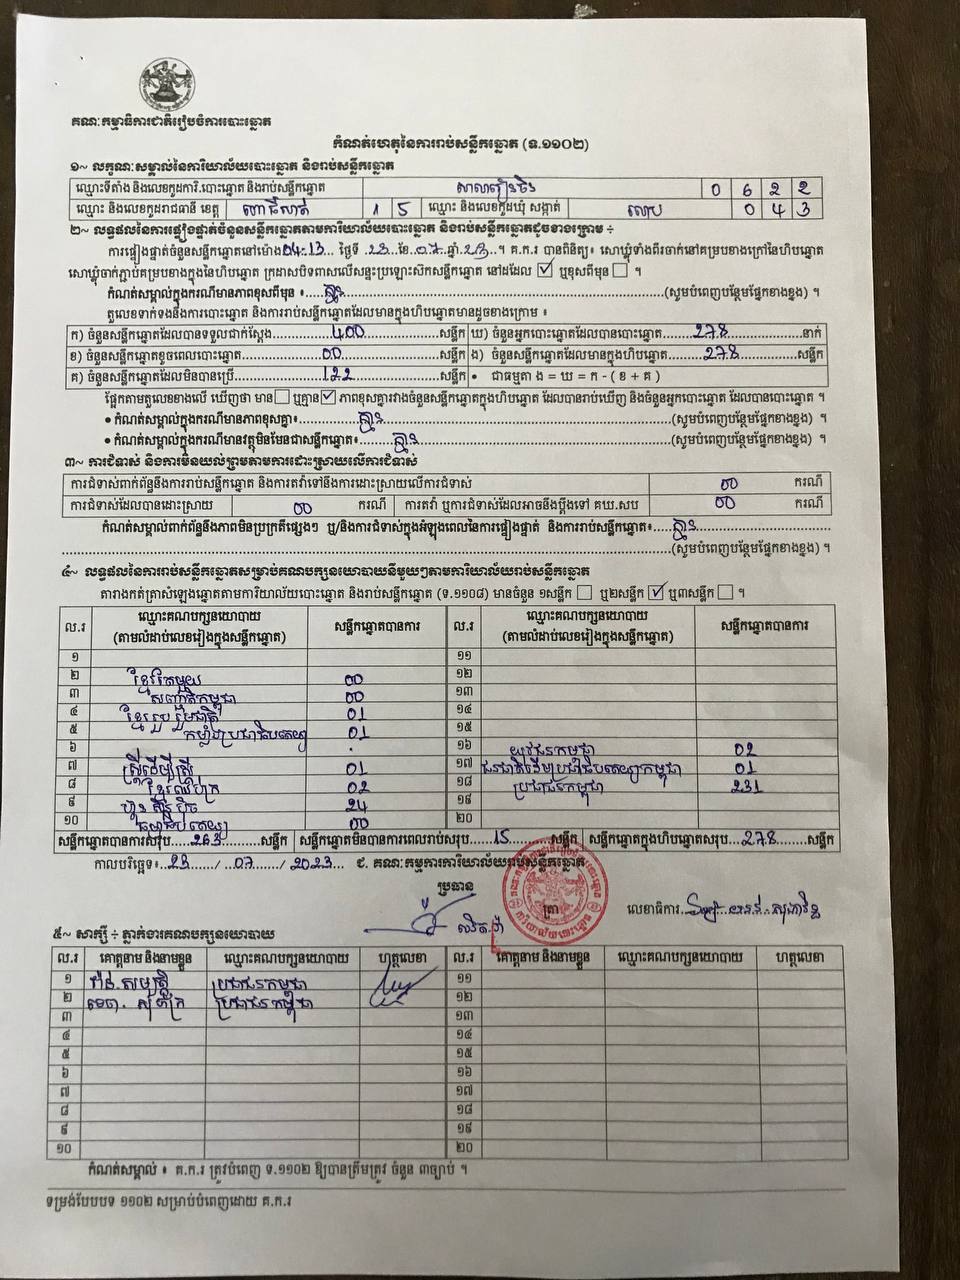 គណៈកម្មាធិការជាតិរៀបចំការបោះឆ្នោត
កំណត់ហេតុនៃការរាប់សន្លឹកឆ្នោត (ទ.១១០២)
១~ លក្ខណៈសម្គាល់នៃការិយាល័យបោះឆ្នោត និងរាប់សន្លឹកឆ្នោត
ឈ្មោះទីតាំង និងលេខកូដការិ.បោះឆ្នោត និងរាប់សន្លឹកឆ្នោត 0 6 2 2
ឈ្មោះ និងលេខកូដរាជធានី ខេត្ត ពោធិ៍សាត់ 1 5 ឈ្មោះ និងលេខកូដឃុំ សង្កាត់ 0 4 3
២~ លទ្ធផលនៃការផ្ទៀងផ្ទាត់ចំនួនសន្លឹកឆ្នោតតាមការិយាល័យបោះឆ្នោត និងរាប់សន្លឹកឆ្នោតដូចខាងក្រោម ÷
ការផ្ទៀងផ្ទាត់ចំនួនសន្លឹកឆ្នោតនៅម៉ោង 04:13 ថ្ងៃទី 23 ខែ 07 ឆ្នាំ 23 ។ គ.ក.រ បានពិនិត្យ៖ សោឃ្លុំទាំងពីរចាក់នៅគម្របខាងក្រៅនៃហិបឆ្នោត
សោឃ្លុំចាក់ភ្ជាប់គម្របខាងក្នុងនៃហិបឆ្នោត ក្រដាសបិទពាសលើសន្ទះប្រឡោះស៊កសន្លឹកឆ្នោត នៅដដែល ☑ ឬខុសពីមុន ☐ ។
កំណត់សម្គាល់ក្នុងករណីមានភាពខុសពីមុន ៖ គ្មាន (សូមបំពេញបន្ថែមផ្នែកខាងខ្នង) ។
តួលេខទាក់ទងនឹងការបោះឆ្នោត និងការរាប់សន្លឹកឆ្នោតដែលមានក្នុងហិបឆ្នោតមានដូចខាងក្រោម ៖
ក) ចំនួនសន្លឹកឆ្នោតដែលបានទទួលជាក់ស្តែង 400 សន្លឹក ឃ) ចំនួនអ្នកបោះឆ្នោតដែលបានបោះឆ្នោត 278 នាក់
ខ) ចំនួនសន្លឹកឆ្នោតខូចពេលបោះឆ្នោត 00 សន្លឹក ង) ចំនួនសន្លឹកឆ្នោតដែលមានក្នុងហិបឆ្នោត 278 សន្លឹក
គ) ចំនួនសន្លឹកឆ្នោតដែលមិនបានប្រើ 122 សន្លឹក • ជាធម្មតា ង = ឃ = ក - ( ខ + គ )
ផ្អែកតាមតួលេខខាងលើ ឃើញថា មាន ☐ ឬគ្មាន ☑ ភាពខុសគ្នារវាងចំនួនសន្លឹកឆ្នោតក្នុងហិបឆ្នោត ដែលបានរាប់ឃើញ និងចំនួនអ្នកបោះឆ្នោត ដែលបានបោះឆ្នោត ។
• កំណត់សម្គាល់ក្នុងករណីមានភាពខុសគ្នា៖ គ្មាន (សូមបំពេញបន្ថែមផ្នែកខាងខ្នង) ។
• កំណត់សម្គាល់ក្នុងករណីមានវត្ថុមិនមែនជាសន្លឹកឆ្នោត៖ គ្មាន (សូមបំពេញបន្ថែមផ្នែកខាងខ្នង) ។
៣~ ការជំទាស់ និងការមិនយល់ព្រមតាមការដោះស្រាយលើការជំទាស់
ការជំទាស់ពាក់ព័ន្ធនឹងការរាប់សន្លឹកឆ្នោត និងការតវ៉ាទៅនឹងការដោះស្រាយលើការជំទាស់ 00 ករណី
ការជំទាស់ដែលបានដោះស្រាយ 00 ករណី ការតវ៉ា ឬការជំទាស់ដែលអាចនឹងប្តឹងទៅ គឃ.សប 00 ករណី
កំណត់សម្គាល់ពាក់ព័ន្ធនឹងភាពមិនប្រក្រតីផ្សេងៗ ឬ/និងការជំទាស់ក្នុងអំឡុងពេលនៃការផ្ទៀងផ្ទាត់ និងការរាប់សន្លឹកឆ្នោត៖ គ្មាន
(សូមបំពេញបន្ថែមផ្នែកខាងខ្នង) ។
៤~ លទ្ធផលនៃការរាប់សន្លឹកឆ្នោតសម្រាប់គណបក្សនយោបាយនីមួយៗតាមការិយាល័យរាប់សន្លឹកឆ្នោត
តារាងកត់ត្រាសំឡេងឆ្នោតតាមការិយាល័យបោះឆ្នោត និងរាប់សន្លឹកឆ្នោត (ទ.១១០៨) មានចំនួន ១សន្លឹក ☐ ឬ២សន្លឹក ☑ ឬ៣សន្លឹក ☐ ។
ល.រ ឈ្មោះគណបក្សនយោបាយ (តាមលំដាប់លេខរៀងក្នុងសន្លឹកឆ្នោត) សន្លឹកឆ្នោតបានការ ល.រ ឈ្មោះគណបក្សនយោបាយ (តាមលំដាប់លេខរៀងក្នុងសន្លឹកឆ្នោត) សន្លឹកឆ្នោតបានការ
១ ១១
២ ខ្មែរតែមួយ 00 ១២
៣ សញ្ជាតិកម្ពុជា 00 ១៣
៤ ខ្មែររួបរួមជាតិ 01 ១៤
៥ កម្លាំងប្រជាធិបតេយ្យ 01 ១៥
៦ ១៦ យុវជនកម្ពុជា 02
៧ ស្ត្រីដើម្បីស្ត្រី 01 ១៧ ជនជាតិដើមប្រជាធិបតេយ្យកម្ពុជា 01
៨ ខ្មែរឈប់ក្រ 02 ១៨ ប្រជាជនកម្ពុជា 231
៩ ហ៊្វុនស៊ិនប៉ិច 24 ១៩
១០ ធម្មាធិបតេយ្យ 00 ២០
សន្លឹកឆ្នោតបានការសរុប 263 សន្លឹក សន្លឹកឆ្នោតមិនបានការពេលរាប់សរុប 15 សន្លឹក សន្លឹកឆ្នោតក្នុងហិបឆ្នោតសរុប 278 សន្លឹក
កាលបរិច្ឆេទ៖ 23 / 07 / 2023 ជ. គណៈកម្មការការិយាល័យរាប់សន្លឹកឆ្នោត
ប្រធាន
ត្រា
លេខាធិការ
៥~ សាក្សី ÷ ភ្នាក់ងារគណបក្សនយោបាយ
ល.រ គោត្តនាម និងនាមខ្លួន ឈ្មោះគណបក្សនយោបាយ ហត្ថលេខា ល.រ គោត្តនាម និងនាមខ្លួន ឈ្មោះគណបក្សនយោបាយ ហត្ថលេខា
១ ប្រជាជនកម្ពុជា ១១
២ ប្រជាជនកម្ពុជា ១២
៣ ១៣
៤ ១៤
៥ ១៥
៦ ១៦
៧ ១៧
៨ ១៨
៩ ១៩
១០ ២០
កំណត់សម្គាល់ ៖ គ.ក.រ ត្រូវបំពេញ ទ.១១០២ ឱ្យបានត្រឹមត្រូវ ចំនួន ៣ច្បាប់ ។
ទម្រង់បែបបទ ១១០២ សម្រាប់បំពេញដោយ គ.ក.រ